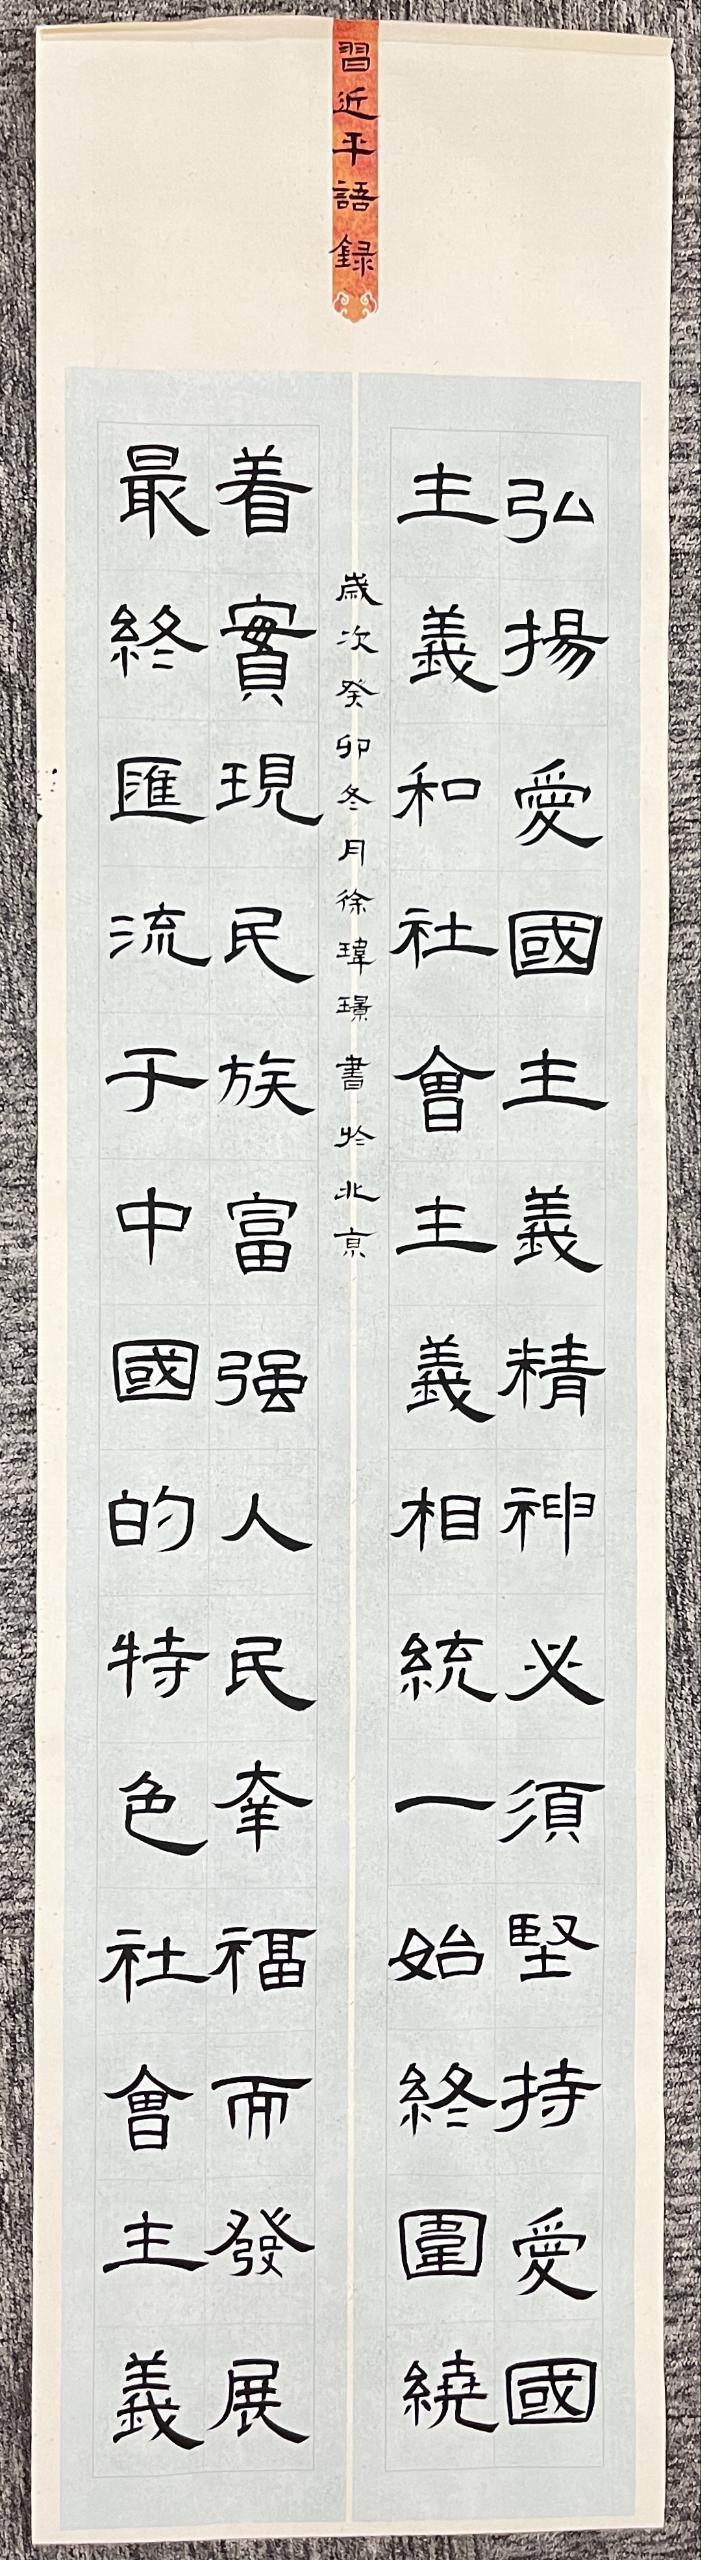 習近平語録
弘揚愛國主義精神必須堅持愛國
主義和社會主義相統一始終圍繞
着實現民族富强人民幸福而發展
最終匯流于中國的特色社會主義
歲次癸卯冬月徐瑋璟書於北京